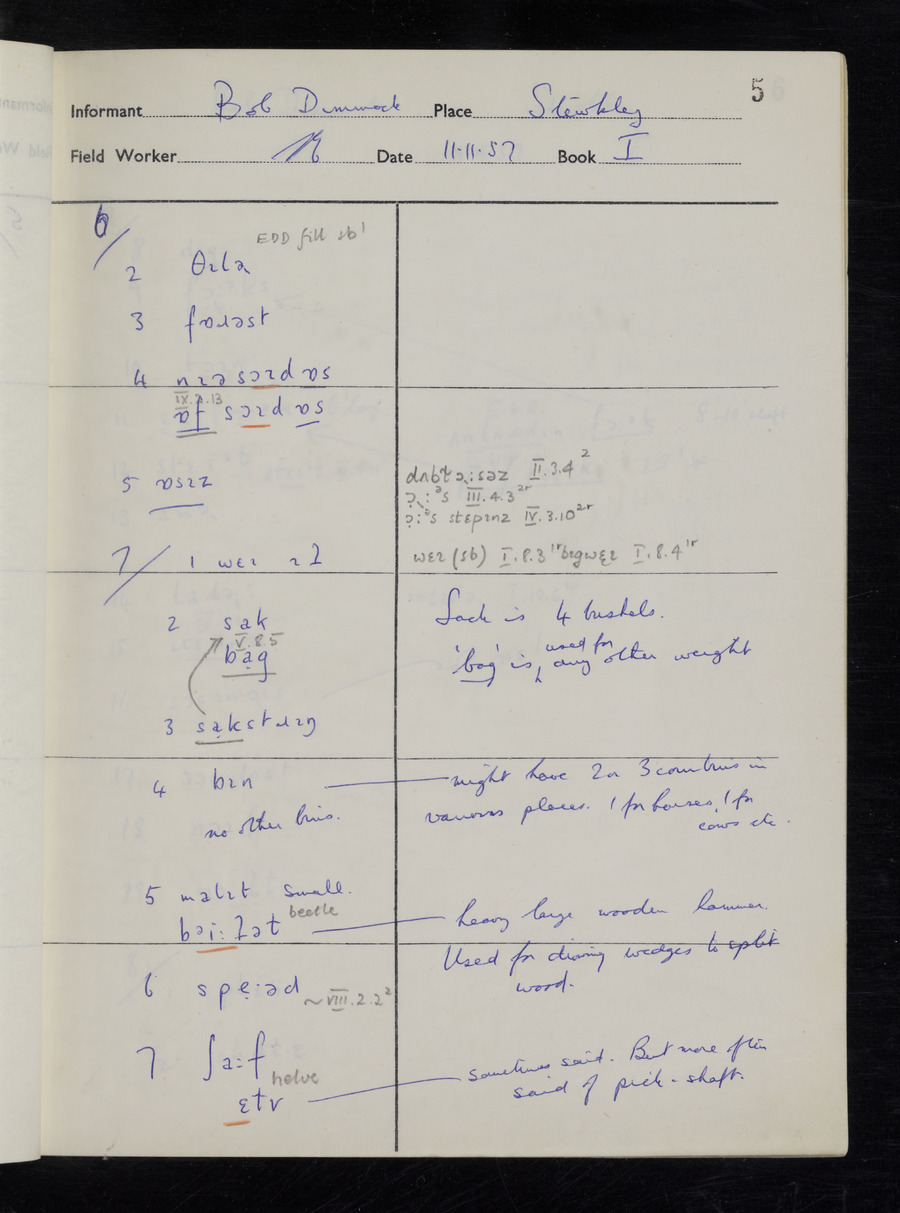 5
Informant Bob Dimmock Place Stewkley
Field Worker Date 11·11·57 Book I
6/
EDD fill sb¹
2 θɪlə
3 fɒɹəst
4
IX.2.13
5 ɒsɪz
dʌbɫə:səz II.3.4²
III.4.3²ʳ
stɛpɪnz IV.3.10²ʳ
7/ 1 wɛɪ ɪɫ
wɛɪ (sb) I.8.3¹ʳ bɪgwɛɪ I.8.4¹ʳ
2 sak
V.8.5
bag
Sack is 4 bushels.
'bag' is used for any other weight
3 sakstɹɪŋ
4 bɪn
no other bins.
might have 2 or 3 corn bins in
various places. 1 for horses, 1 for
cows etc.
5 malɪt small.
beetle
bəi:ɫət
heavy large wooden hammer.
Used for driving wedges to split
wood.
6 spe·əd ~VIII.2.2²
7 ʃa:f
helve
ɛɫv
sometimes said. But more often
said of pick-shaft.